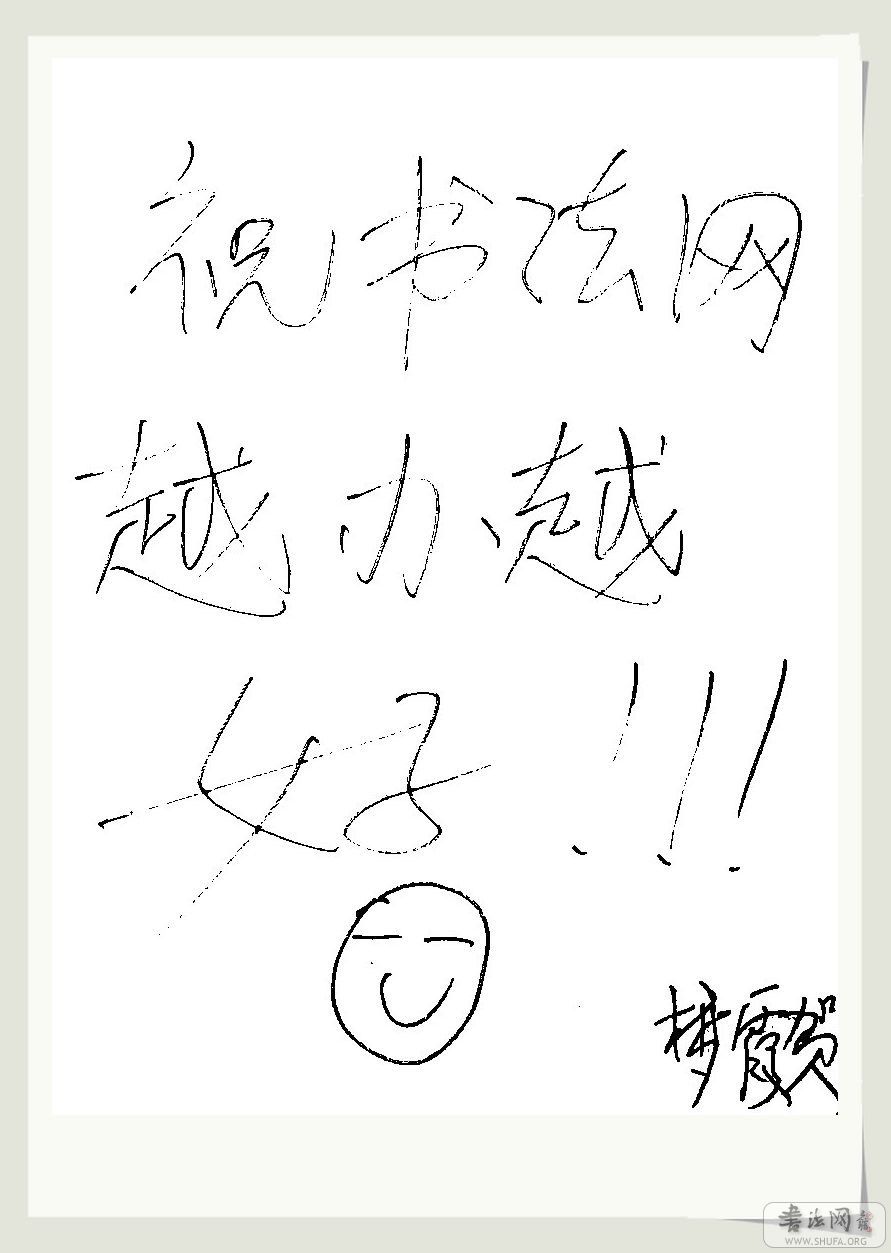 祝书法网
越办越
好!!!
梦霞贺
书法网
WWW.SHUFA.ORG